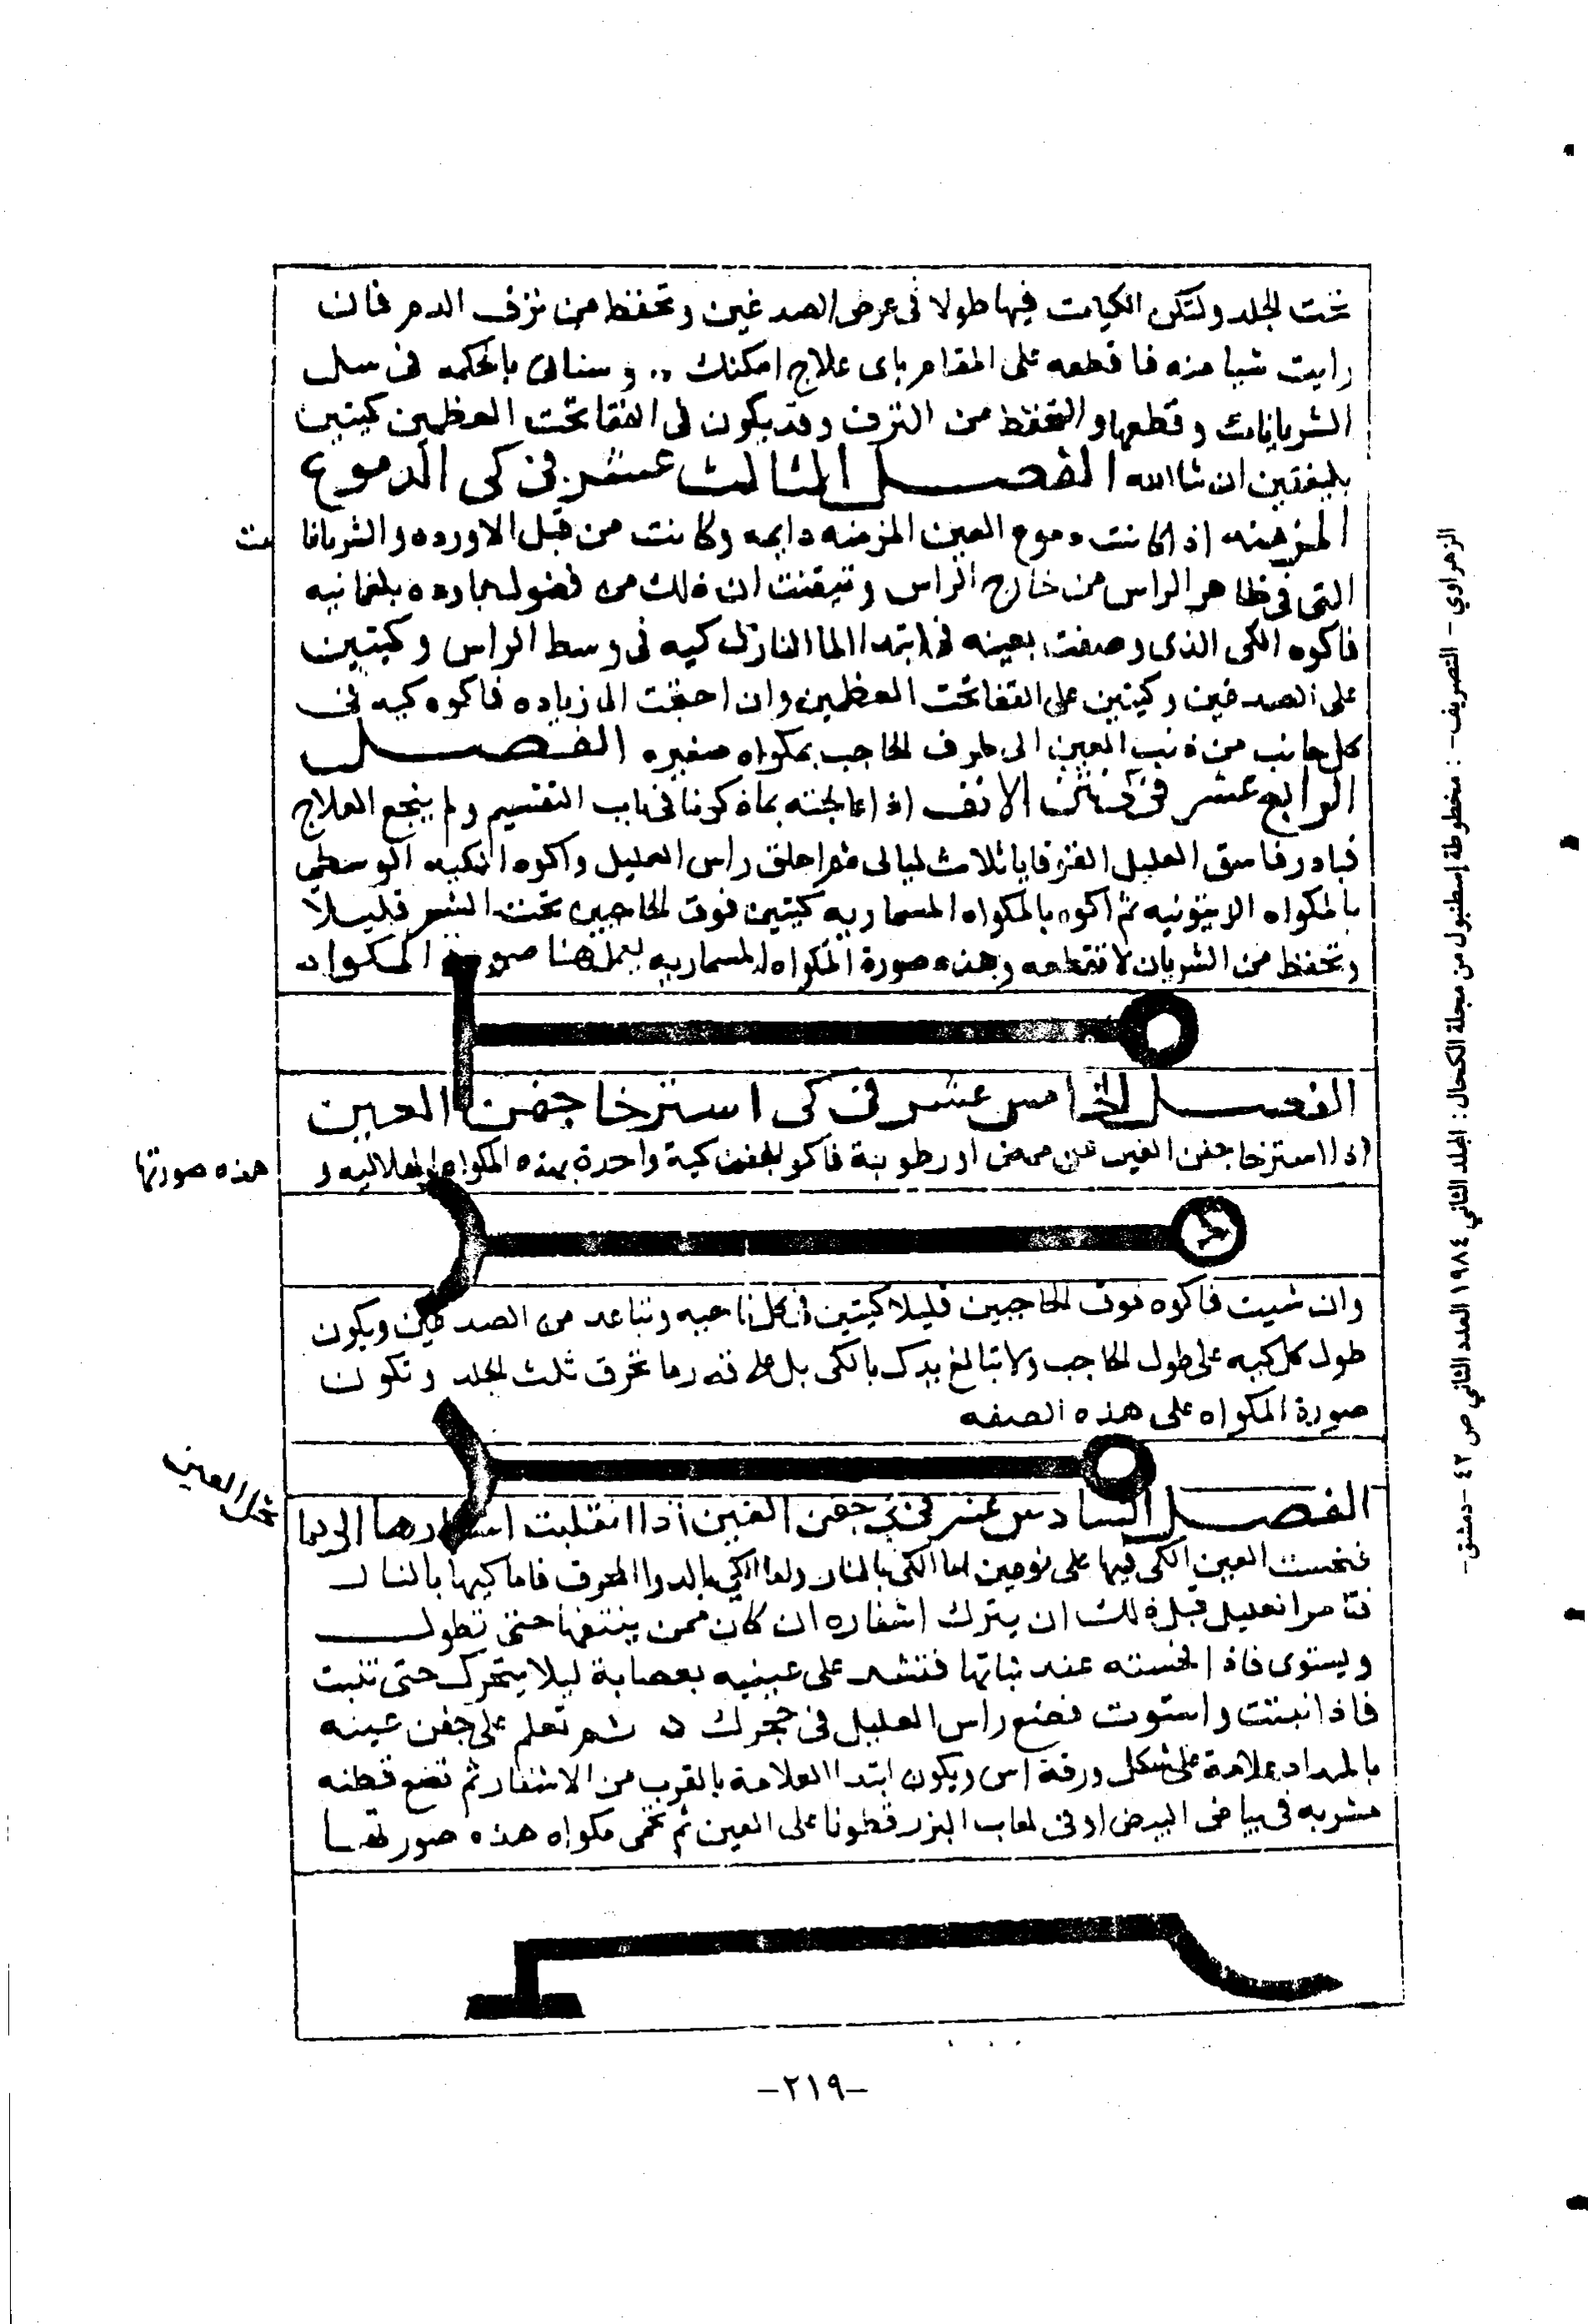 تحت الجلد ولتكن الكيات فيها طولا فى عرض الصدغين وتحفظ من نزف الدم فان
رايت شيا منه فاقطعه على المقام باى علاج امكنك .. و سناتى بالحكمه فى سل
الشريانات وقطعها والتحفظ من النزف وقد يكون فى القفا تحت العظمين كيتين
بليغتين ان شا الله الفصل الثالث عشر فى كى الدموع
المزمنه اذا كانت دموع العين المزمنه دايمه وكانت من قبل الاورده والشريانات
التى فى ظاهر الراس من خارج الراس وتيقنت ان ذلك من فضول بارده بلغمانيه
فاكوه الكى الذى وصفت بعينه فى ابتدا الما النازل كيه فى وسط الراس وكيتين
على الصدغين وكيتين على القفا تحت العظمين وان احتجت الى زياده فاكوه كيه فى
كل جانب من ذنب العين الى طرف الحاجب بمكواه صغيره الفصل
الرابع عشر فى نتن الانف اذا عالجته بما ذكرنا فى باب التقسيم ولم ينجع العلاج
فبادر فاسق العليل القوقايا ثلاث ليالى ثم احلق راس العليل واكوه الكيه الوسطى
بالمكواه الزيتونيه ثم اكوه بالمكواه المسماريه كيتين فوق الحاجبين تحت الشعر قليلا
وتحفظ من الشريان لا تقطعه وهذه صورة المكواه المسماريه يعمل هنا صورة المكواه
الفصل الخامس عشر فى كى استرخا جفن العين
اذا استرخا جفن العين من مرض او رطوبة فاكو الجفن كية واحدة بهذه المكواه الهلاليه و هذه صورتها
وان شيت فاكوه فوق الحاجبين قليلا كيتين فى كل ناحيه وتباعد من الصدغين ويكون
طول كل كيه على طول الحاجب ولا تبالغ يدك بالكى بل على قدر ما تحرق ثلث الجلد وتكون
صورة المكواه على هذه الصفه
الفصل السادس عشر فى كى جفن العين اذا انقلبت اشفارها الى داخل العين
فنخست العين الكى فيها على نوعين اما الكى بالنار واما الكى بالدوا المحرق فاما كيها بالنار
فتامر العليل قبل ذلك ان يترك اشفاره ان كان ممن ينتفها حتى تطول
ويستوى فاذا نخسته عند نباتها فتشد على عينيه بعصابة ليلا يتحرك حتى تنبت
فاذا نبتت واستوت فضع راس العليل فى حجرك ثم تعلم على جفن عينه
بالمداد علامة على شكل ورقة اس ويكون ابتدا العلامة بالقرب من الاشفار ثم تضع قطنه
مشربه فى بياض البيض او فى لعاب البزر قطونا على العين ثم تحمى مكواه هذه صورتها
الزهراوي - التصريف - : مخطوطة إسطنبول من مجلة الكحال : المجلد الثاني ١٩٨٤ العدد الثاني ص ٤٢ - دمشق -
-٢١٩-